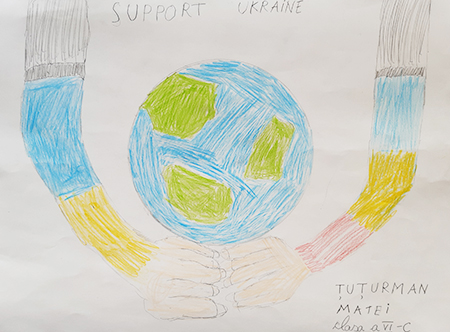 SUPPORT UKRAINE
ȚUȚURMAN
MATEI
clasa a VI-C